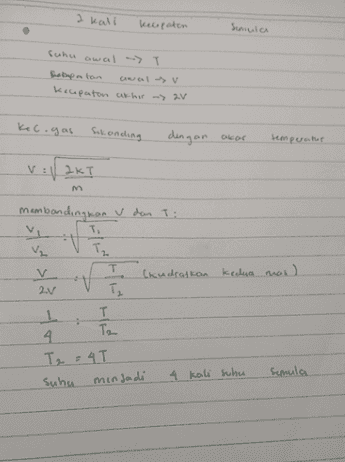 2 kali kecepatan semula
suhu awal --> T
kecepatan awal --> V
kecepatan akhir --> 2V
kec. gas sebanding dengan akar temperatur
V = √(2kT/m)
membandingkan V dan T :
V₁/V₂ = √(T₁/T₂)
V/2V = √(T/T₂) (kudratkan kedua ruas)
1/4 = T/T₂
T₂ = 4T
suhu menjadi 4 kali suhu semula